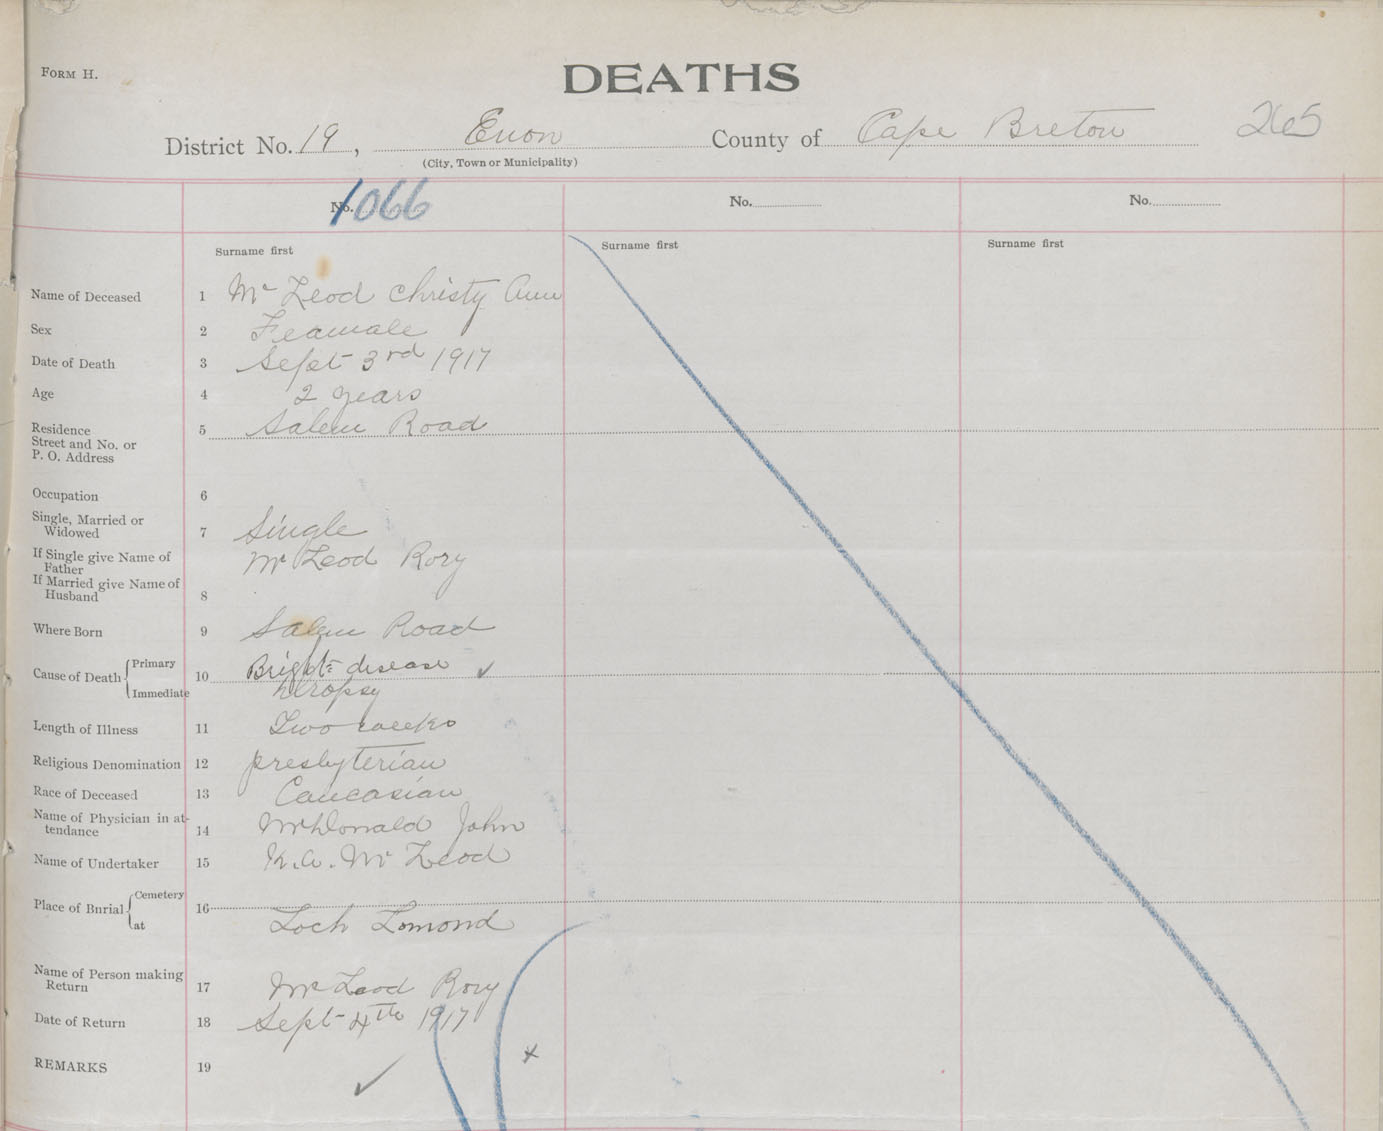 FORM H.
DEATHS
District No. 19, Enon County of Cape Breton 265
(City, Town or Municipality)
No. 1066 No. No.
Surname first Surname first Surname first
Name of Deceased 1 Mc Leod Christy Ann
Sex 2 Feamale
Date of Death 3 Sept 3rd 1917
Age 4 2 years
Residence 5 Salem Road
Street and No. or
P. O. Address
Occupation 6
Single, Married or
Widowed 7 Single
If Single give Name of
Father Mc Leod Rory
If Married give Name of
Husband 8
Where Born 9 Salem Road
Cause of Death Primary 10 Bright disease ✓
Immediate dropsy
Length of Illness 11 Two weeks
Religious Denomination 12 presbyterian
Race of Deceased 13 Caucasian
Name of Physician in at-
tendance 14 McDonald John
Name of Undertaker 15 K. A. Mc Leod
Place of Burial Cemetery 16
at Loch Lomond
Name of Person making
Return 17 Mc Leod Rory
Date of Return 18 Sept 4th 1917
REMARKS 19